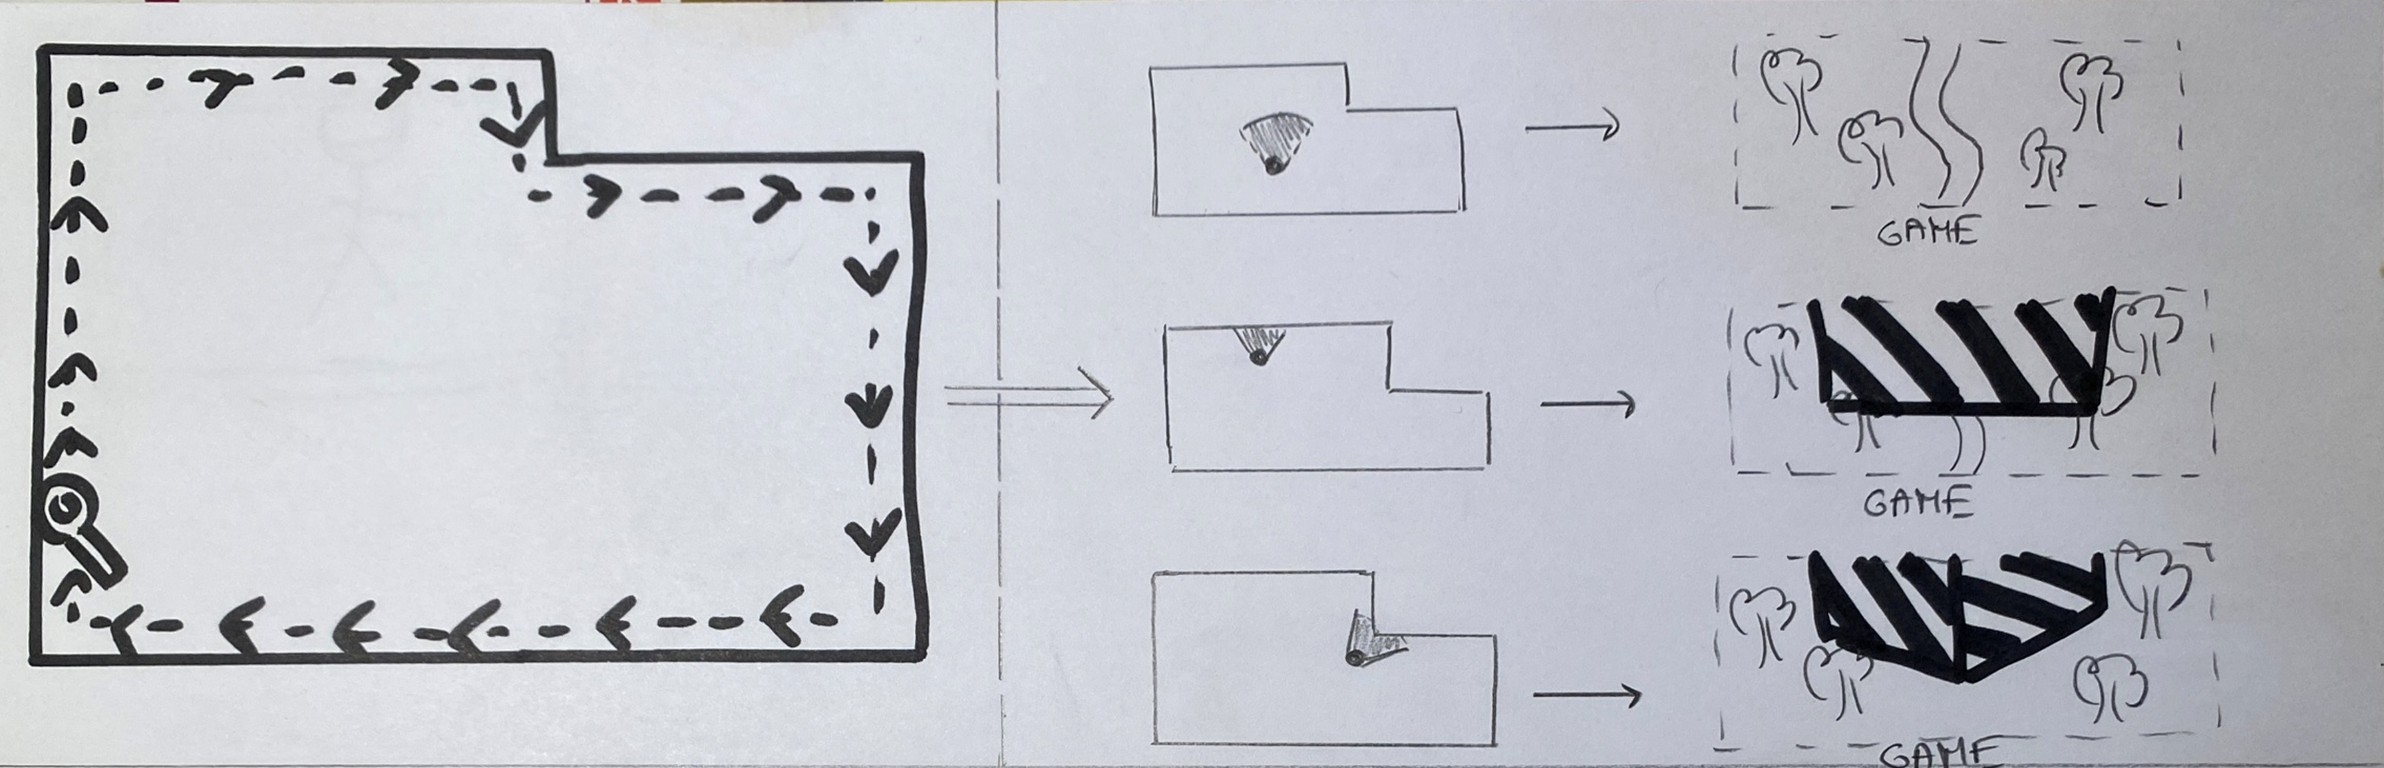 GAME
GAME
GAME